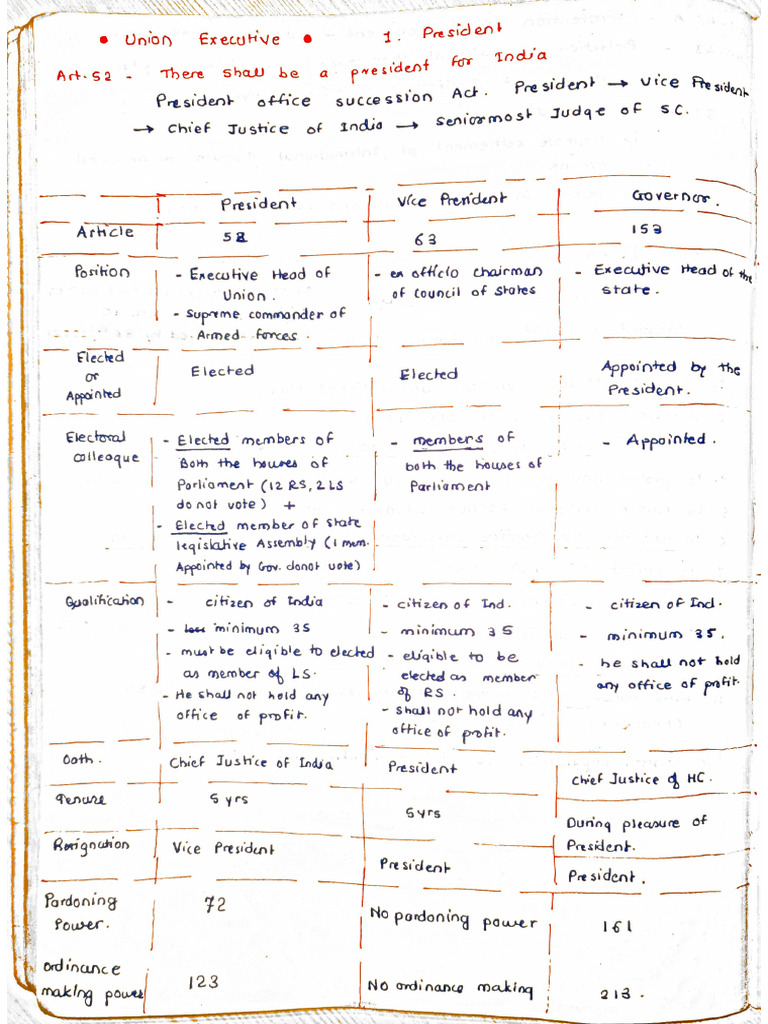 • Union Executive • 1. President
Art.52 - There shall be a president for India
President office succession Act. President → Vice President
→ Chief Justice of India → Seniormost Judge of SC.
President Vice President Governor.
Article 52 63 153
Position - Executive Head of Union. - Supreme commander of Armed forces. - ex officio chairman of council of states - Executive Head of the state.
Elected or Appointed Elected Elected Appointed by the President.
Electoral colleaque - Elected members of Both the houses of Parliament (12 RS, 2 LS do not vote) + - Elected member of state legislative Assembly (1 mem. Appointed by Gov. donot vote) - members of both the houses of Parliament - Appointed.
Qualification - citizen of India - minimum 35 - must be eligible to elected as member of LS. - He shall not hold any office of profit. - citizen of Ind. - minimum 35 - eligible to be elected as member of RS. - shall not hold any office of profit. - citizen of Ind. - minimum 35. - he shall not hold any office of profit.
Oath. Chief Justice of India President Chief Justice of HC.
Tenure 5 yrs 5yrs During pleasure of President.
Resignation Vice President President President.
Pardoning Power. 72 No pardoning power 161
ordinance making power 123 No ordinance making 213.